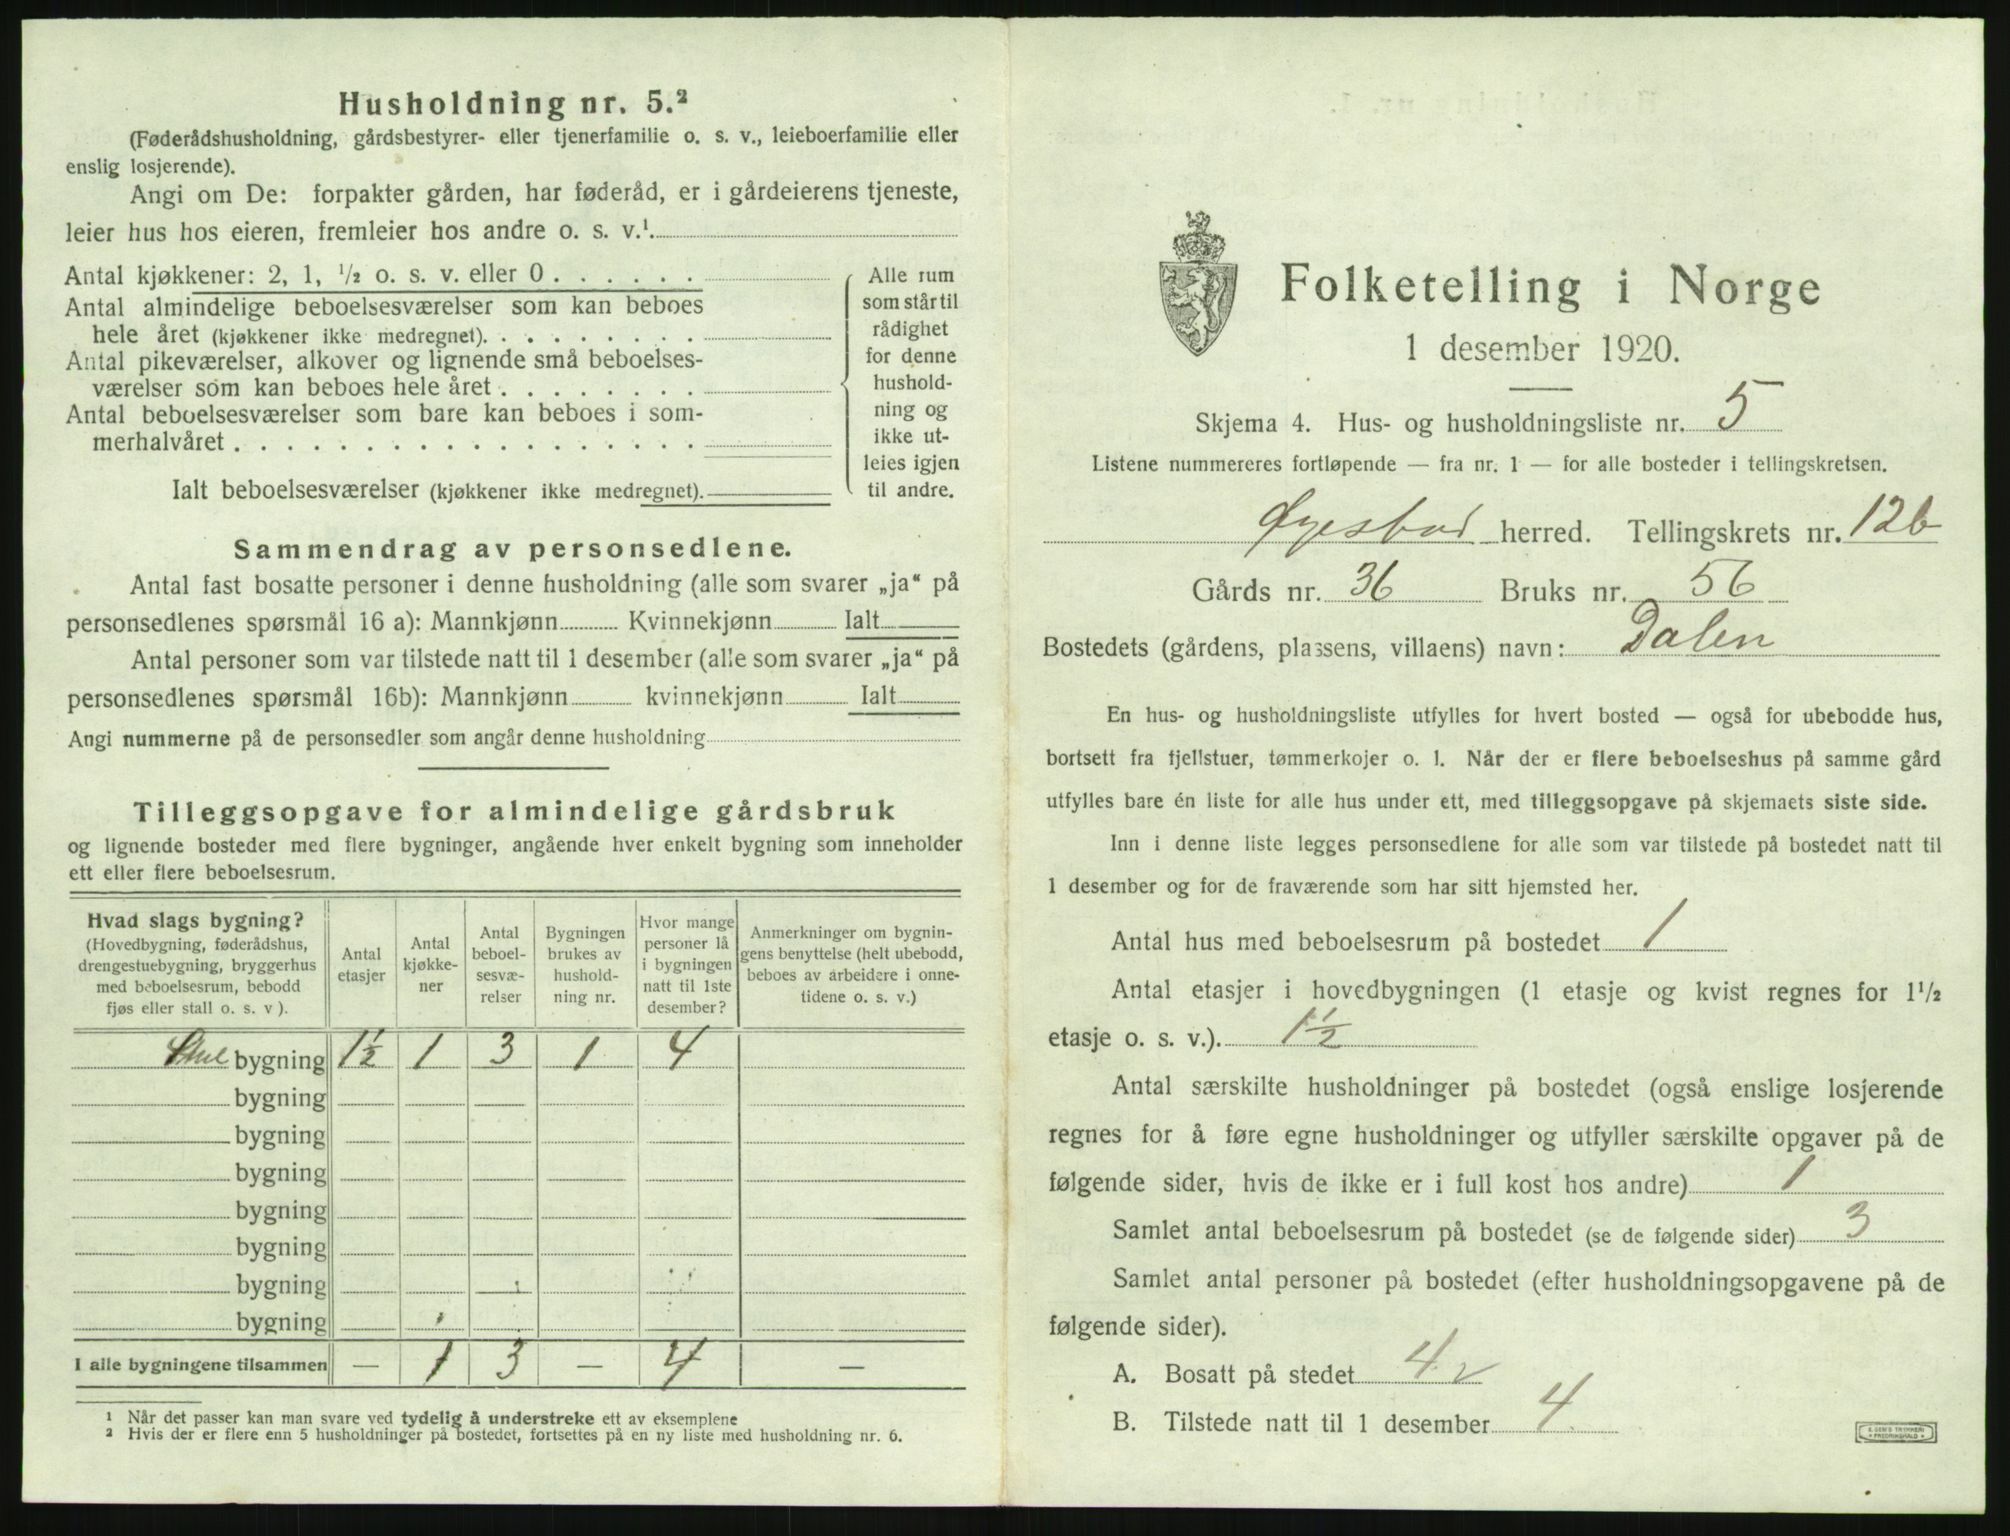 Husholdning nr. 5.²
(Føderådshusholdning, gårdsbestyrer- eller tjenerfamilie o. s. v., leieboerfamilie eller
enslig losjerende).
Angi om De: forpakter gården, har føderåd, er i gårdeierens tjeneste,
leier hus hos eieren, fremleier hos andre o. s. v.¹
Antal kjøkkener: 2, 1, ½ o. s. v. eller 0 . . . . . .
Antal almindelige beboelsesværelser som kan beboes
hele året (kjøkkener ikke medregnet). . . . . . . . .
Antal pikeværelser, alkover og lignende små beboelses-
værelser som kan beboes hele året . . . . . . . .
Antal beboelsesværelser som bare kan beboes i som-
merhalvåret . . . . . . . . . . . . . . . . . .
Ialt beboelsesværelser (kjøkkener ikke medregnet).
Alle rum
som står til
rådighet
for denne
hushold-
ning og
ikke ut-
leies igjen
til andre.
Sammendrag av personsedlene.
Antal fast bosatte personer i denne husholdning (alle som svarer „ja“ på
personsedlenes spørsmål 16 a): Mannkjønn Kvinnekjønn Ialt
Antal personer som var tilstede natt til 1 desember (alle som svarer „ja“ på
personsedlenes spørsmål 16b): Mannkjønn kvinnekjønn Ialt
Angi nummerne på de personsedler som angår denne husholdning
Tilleggsopgave for almindelige gårdsbruk
og lignende bosteder med flere bygninger, angående hver enkelt bygning som inneholder
ett eller flere beboelsesrum.
Hvad slags bygning?
(Hovedbygning, føderådshus,
drengestuebygning, bryggerhus
med beboelsesrum, bebodd
fjøs eller stall o. s. v ).
Antal
etasjer
Antal
kjøkke-
ner
Antal
beboel-
sesvæ-
relser
Bygningen
brukes av
hushold-
ning nr.
Hvor mange
personer lå
i bygningen
natt til 1ste
desember?
Anmerkninger om bygnin-
gens benyttelse (helt ubebodd,
beboes av arbeidere i onne-
tidene o. s. v.)
bygning 1½ 1 3 1 4
bygning
bygning
bygning
bygning
bygning
bygning
bygning
I alle bygningene tilsammen — 1 3 — 4 —
¹ Når det passer kan man svare ved tydelig å understreke ett av eksemplene
² Hvis der er flere enn 5 husholdninger på bostedet, fortsettes på en ny liste med husholdning nr. 6.
Folketelling i Norge
1 desember 1920.
Skjema 4. Hus- og husholdningsliste nr. 5
Listene nummereres fortløpende — fra nr. 1 — for alle bosteder i tellingskretsen.
Øyestad herred. Tellingskrets nr. 12b
Gårds nr. 36 Bruks nr. 56
Bostedets (gårdens, plassens, villaens) navn: Dalen
En hus- og husholdningsliste utfylles for hvert bosted — også for ubebodde hus,
bortsett fra fjellstuer, tømmerkojer o. l. Når der er flere beboelseshus på samme gård
utfylles bare én liste for alle hus under ett, med tilleggsopgave på skjemaets siste side.
Inn i denne liste legges personsedlene for alle som var tilstede på bostedet natt til
1 desember og for de fraværende som har sitt hjemsted her.
Antal hus med beboelsesrum på bostedet 1
Antal etasjer i hovedbygningen (1 etasje og kvist regnes for 1½
etasje o. s. v.). 1½
Antal særskilte husholdninger på bostedet (også enslige losjerende
regnes for å føre egne husholdninger og utfyller særskilte opgaver på de
følgende sider, hvis de ikke er i full kost hos andre) 1
Samlet antal beboelsesrum på bostedet (se de følgende sider) 3
Samlet antal personer på bostedet (efter husholdningsopgavene på de
følgende sider).
A. Bosatt på stedet 4
B. Tilstede natt til 1 desember 4